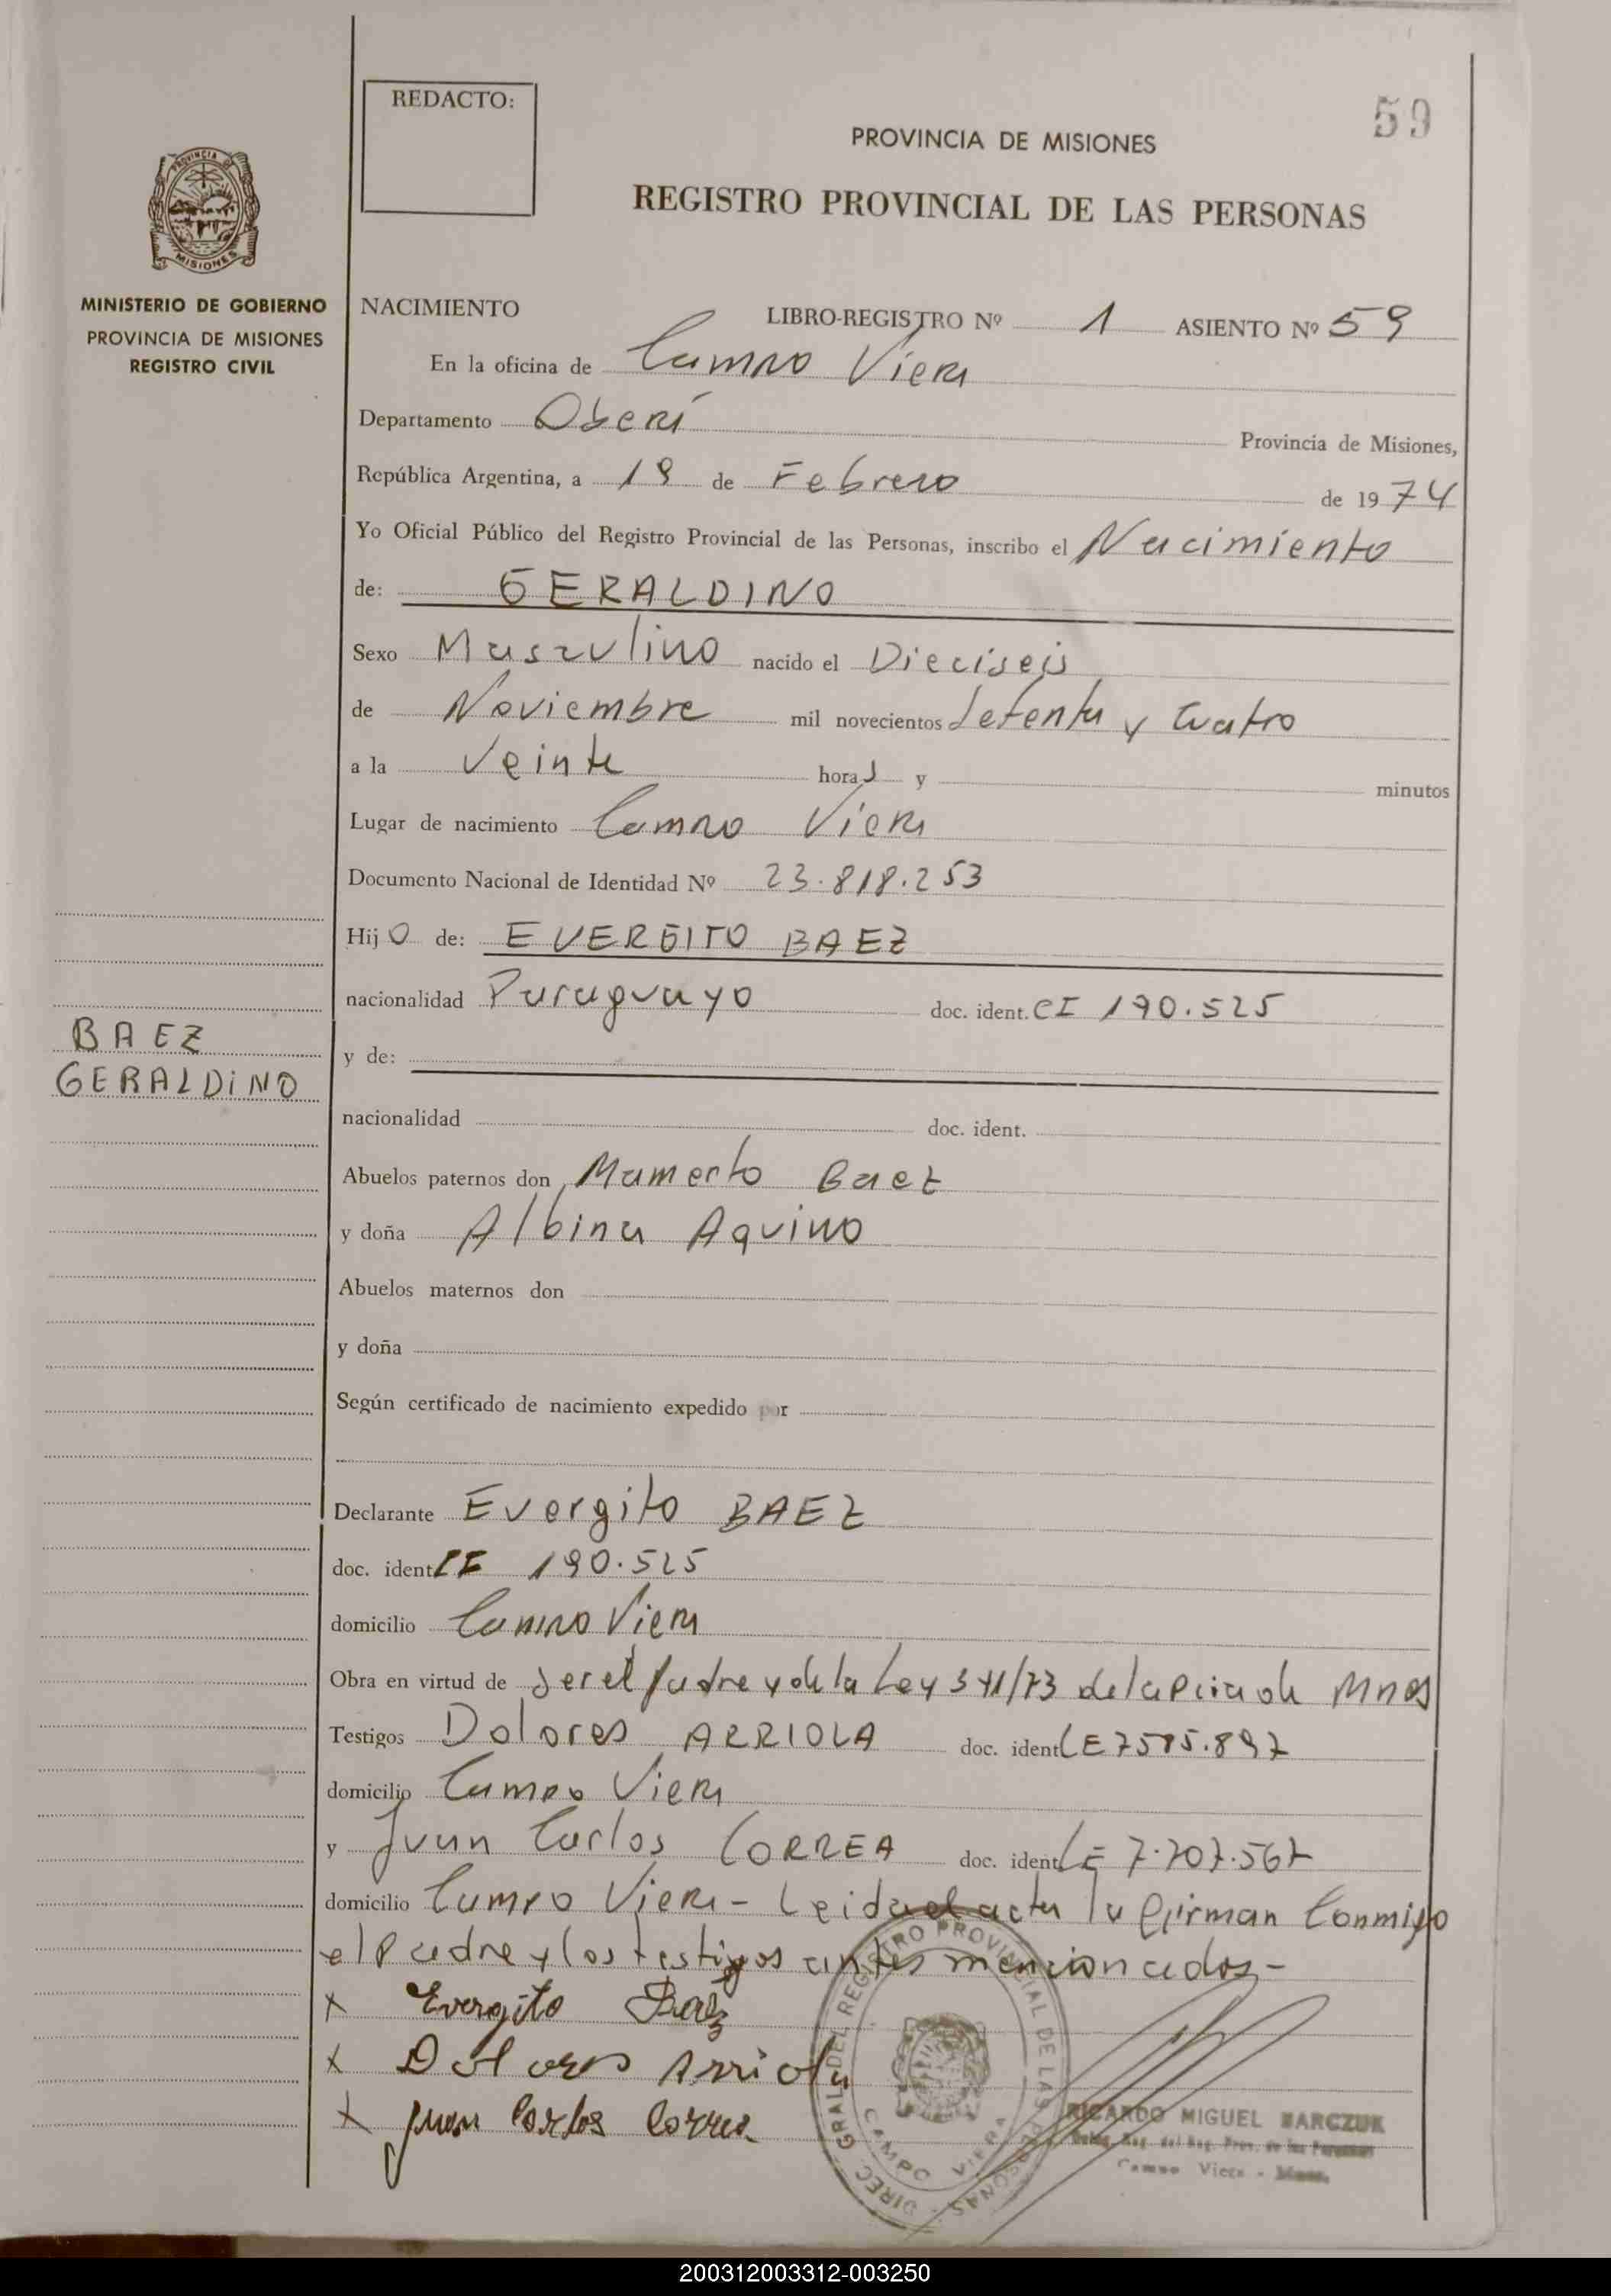 REDACTO:
59
PROVINCIA DE MISIONES
REGISTRO PROVINCIAL DE LAS PERSONAS
PROVINCIA DE
MISIONES
MINISTERIO DE GOBIERNO
PROVINCIA DE MISIONES
REGISTRO CIVIL
NACIMIENTO LIBRO-REGISTRO Nº 1 ASIENTO Nº 59
En la oficina de Campo Viera
Departamento Oberí
Provincia de Misiones,
República Argentina, a 19 de Febrero de 1974
Yo Oficial Público del Registro Provincial de las Personas, inscribo el Nacimiento
de: GERALDINO
Sexo Masculino nacido el Dieciseis
de Noviembre mil novecientos setenta y cuatro
a la Veinte horas y minutos
Lugar de nacimiento Campo Viera
Documento Nacional de Identidad Nº 23.818.253
Hijo de: EVERGITO BAEZ
nacionalidad Paraguayo doc. ident. CI 190.525
BAEZ
GERALDINO
y de:
nacionalidad doc. ident.
Abuelos paternos don Mamerto Baez
y doña Albina Aquino
Abuelos maternos don
y doña
Según certificado de nacimiento expedido por
Declarante Evergito BAEZ
doc. ident CI 190.525
domicilio Campo Viera
Obra en virtud de ser el padre y de la Ley de la Pcia de Mnes
Testigos Dolores ARRIOLA doc. ident LE
domicilio Campo Viera
y Juan Carlos CORREA doc. ident LE 7.707.567
domicilio Campo Viera - Leida el acta la firman conmigo
el Padre y los testigos antes mencionados-
x Evergito Baez
x Dolores Arriola
x Juan Carlos Correa
DIREC. GRAL. DEL REGISTRO PROVINCIAL DE LAS PERSONAS
CAMPO VIERA
RICARDO MIGUEL MARCZUK
Reg. del Reg. Prov. de las Personas
Campo Viera - Mnes.
200312003312-003250